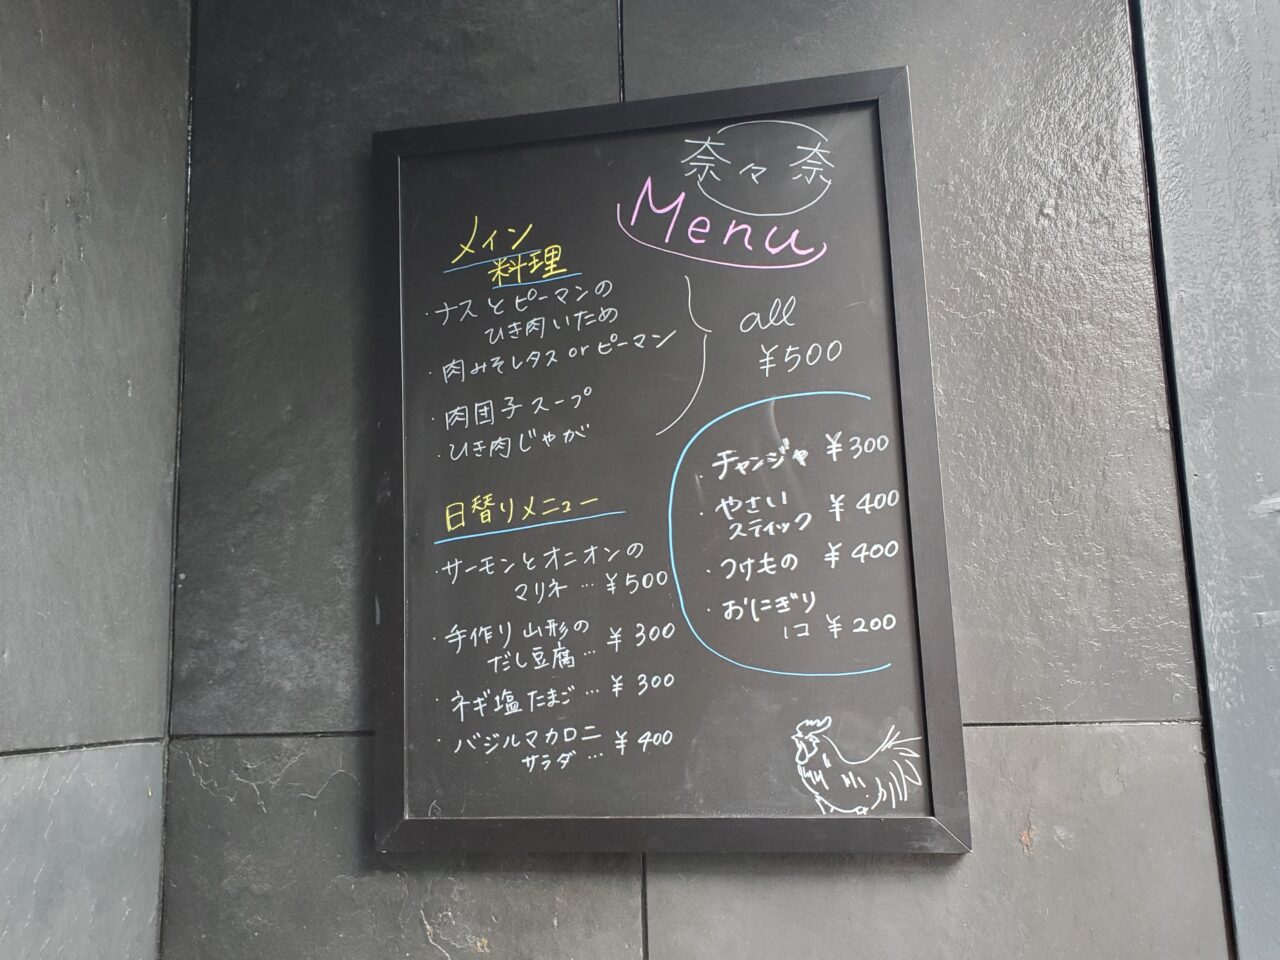 奈々奈
Menu
メイン
料理
・ナスとピーマンの
ひき肉いため
・肉みそレタスorピーマン
・肉団子スープ
・ひき肉じゃが
all
¥500
日替りメニュー
・サーモンとオニオンの
マリネ…¥500
・手作り山形の
だし豆腐…¥300
・ネギ塩たまご…¥300
・バジルマカロニ
サラダ…¥400
・チャンジャ ¥300
・やさい
スティック ¥400
・つけもの ¥400
・おにぎり
1コ ¥200